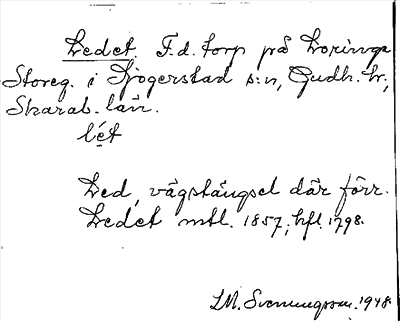 Ledet F.d. torp på Loringa
Storeg. i Sjogerstad s:n, Gudh. hr,
Skarab. län.
lét
Led, vägstängsel där förr.
Ledet mtl. 1857, hfl. 1798.
I.M. Svenungsson. 1948